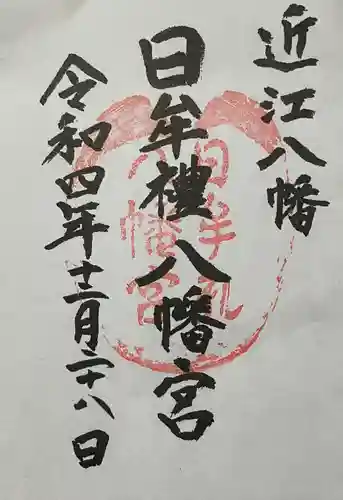 近江八幡
日牟禮八幡宮
令和四年十二月二十八日
日牟礼
八幡宮